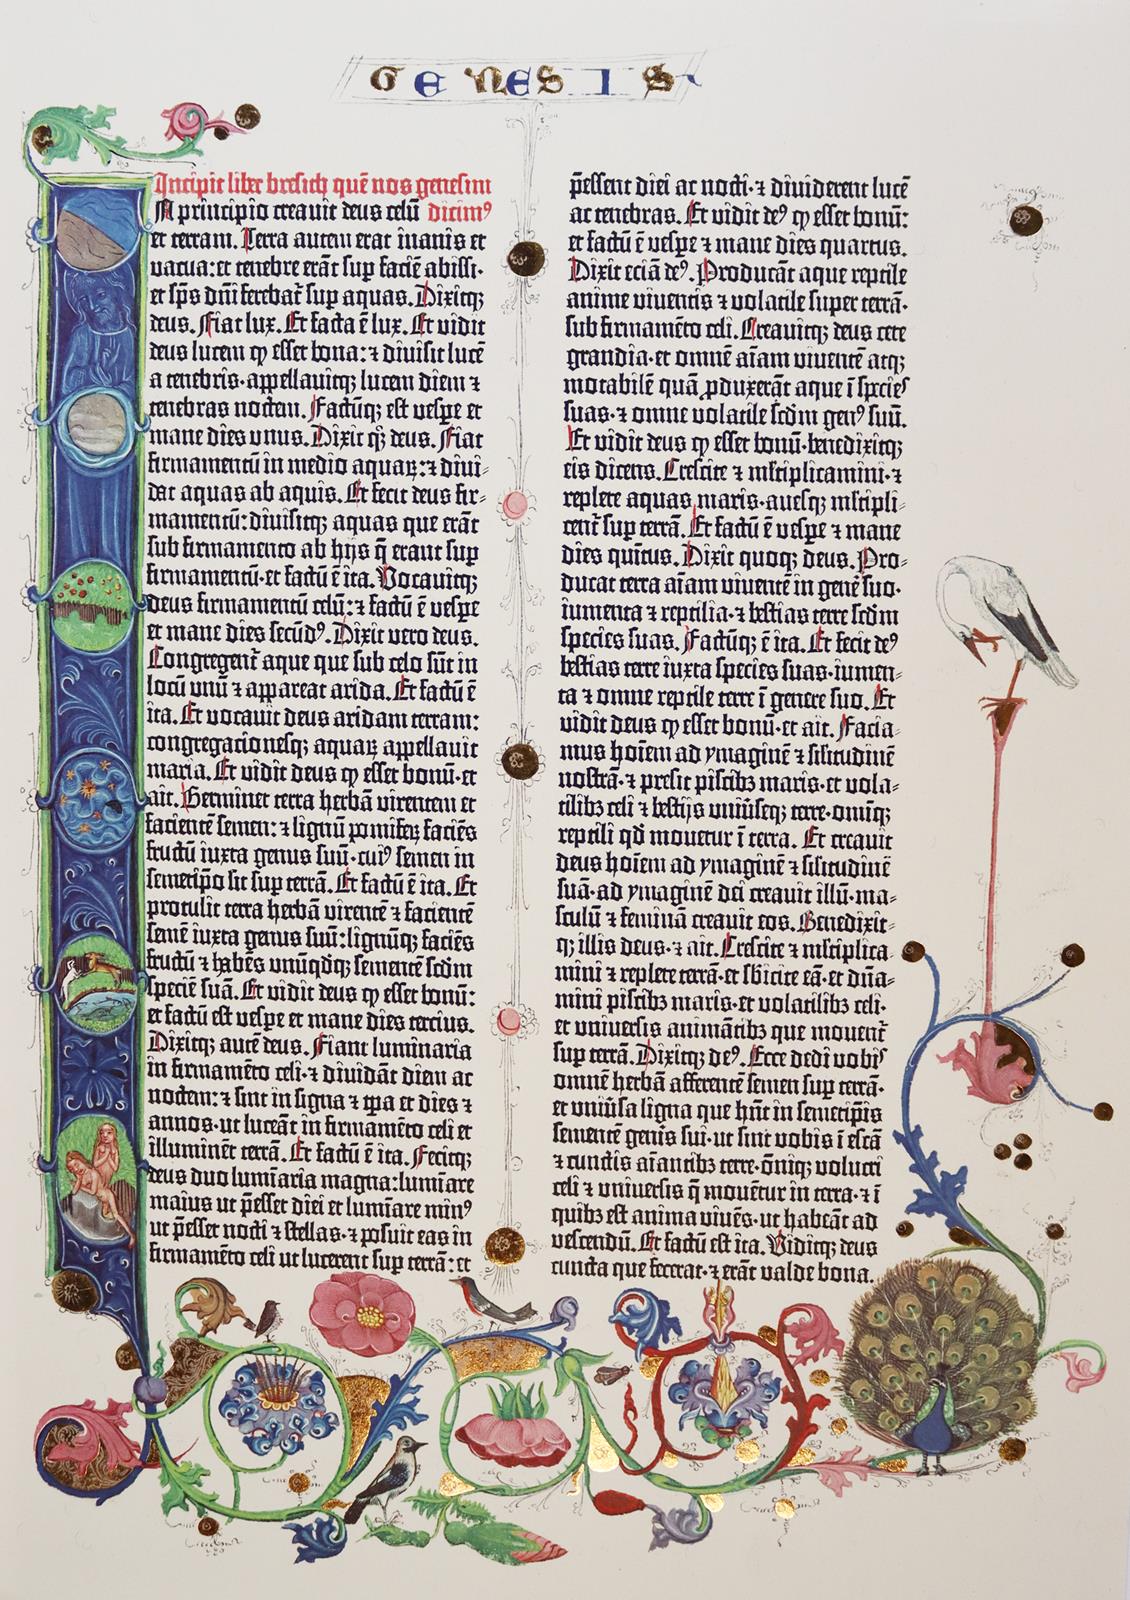 GENESIS
Incipit liber bresith quē nos genesim
In principio creauit deus celū dicim⁹
et terram. Terra autem erat inanis et
vacua: et tenebre erāt sup faciē abissi·
et sp̄s dn̄i ferebat̄ sup aquas. Dixitq;
deus. Fiat lux. Et facta ē lux. Et vidit
deus lucem ꝙ esset bona: ⁊ diuisit lucē
a tenebris· appellauitq; lucem diem ⁊
tenebras noctem. Factūq; est vespe et
mane dies vnus. Dixit qꝫ deus. Fiat
firmamentū in medio aquaꝝ: ⁊ diui-
dat aquas ab aquis. Et fecit deus fir-
mamentū: diuisitq; aquas que erāt
sub firmamento ab hijs q̄ erant sup
firmamentū· et factū ē ita. Vocauitq;
deus firmamentū celū: ⁊ factū ē vespe
et mane dies secūd⁹. Dixit vero deus.
Congregent̄ aque que sub celo sūt in
locū vnū ⁊ appareat arida. Et factū ē
ita. Et vocauit deus aridam terram:
congregacionesq; aquaꝝ appellauit
maria. Et vidit deus ꝙ esset bonū· et
ait. Germinet terra herbā virentem et
facientē semen: ⁊ lignū pomifeꝝ faciēs
fructū iuxta genus suū· cui⁹ semen in
semetip̄o sit sup terrā. Et factū ē ita. Et
protulit terra herbā virentē ⁊ facientē
semē iuxta genus suū: lignūq; faciēs
fructū ⁊ habēs vnūqdq; sementē scdm
speciē suā. Et vidit deus ꝙ esset bonū:
et factū est vespe et mane dies tercius.
Dixitq; autē deus. Fiant luminaria
in firmamēto celi· ⁊ diuidāt diem ac
noctem: ⁊ sint in signa ⁊ tp̄a et dies ⁊
annos· ut luceāt in firmamēto celi et
illuminēt terrā. Et factū ē ita. Fecitq;
deus duo lumīaria magna: lumīare
maius ut p̄esset diei et lumīare min⁹
ut p̄esset nocti ⁊ stellas· ⁊ posuit eas in
firmamēto celi ut lucerent sup terrā: et
p̄essent diei ac nocti· ⁊ diuiderent lucē
ac tenebras. Et vidit de⁹ ꝙ esset bonū:
et factū ē vespe ⁊ mane dies quartus.
Dixit eciā de⁹. Producāt aque reptile
anime viuentis ⁊ volatile super terrā·
sub firmamēto celi. Creauitq; deus cete
grandia· et omnē aīam viuentē atq;
motabilē quā ꝓduxerāt aque ī species
suas· ⁊ omne volatile scdm gen⁹ suū.
Et vidit deus ꝙ esset bonū· benedixitq;
eis dicens. Crescite ⁊ mltiplicamini· ⁊
replete aquas maris· auesq; mltipli-
cent̄ sup terrā. Et factū ē vespe ⁊ mane
dies quītus. Dixit quoq; deus. Pro-
ducat terra aīam viuentē in genē suo·
iumenta ⁊ reptilia· ⁊ bestias terre scdm
species suas. Factūq; ē ita. Et fecit de⁹
bestias terre iuxta species suas· iumen-
ta ⁊ omne reptile terre ī genere suo. Et
vidit deus ꝙ esset bonū· et ait. Facia-
mus hoīem ad ymaginē ⁊ silitudinē
nostrā· ⁊ presit piscibꝫ maris· et vola-
tilibꝫ celi ⁊ bestijs vniūseq; terre· omīq;
reptili qd̄ mouetur ī terra. Et creauit
deus hoīem ad ymaginē ⁊ silitudinē
suā· ad ymaginē dei creauit illū· ma-
sculū ⁊ feminā creauit eos. Benedixit-
q; illis deus· ⁊ ait. Crescite ⁊ mltiplica-
mini ⁊ replete terrā· et sbicite eā· et dn̄a-
mini piscibꝫ maris· et volatilibꝫ celi·
et vniuersis animātibꝫ que mouent̄
sup terrā. Dixitq; de⁹. Ecce dedi vobis
omnē herbā afferentē semen sup terrā·
et vniūsa ligna que hn̄t in semetip̄is
sementē genis sui· ut sint vobis ī escā
⁊ cunctis aīantibꝫ terre· om̄iq; volucri
celi ⁊ vniuersis q̄ mouētur in terra· ⁊ ī
quibꝫ est anima viuēs· ut habeāt ad
vescendū. Et factū est ita. Viditq; deus
cuncta que fecerat· ⁊ erāt valde bona.